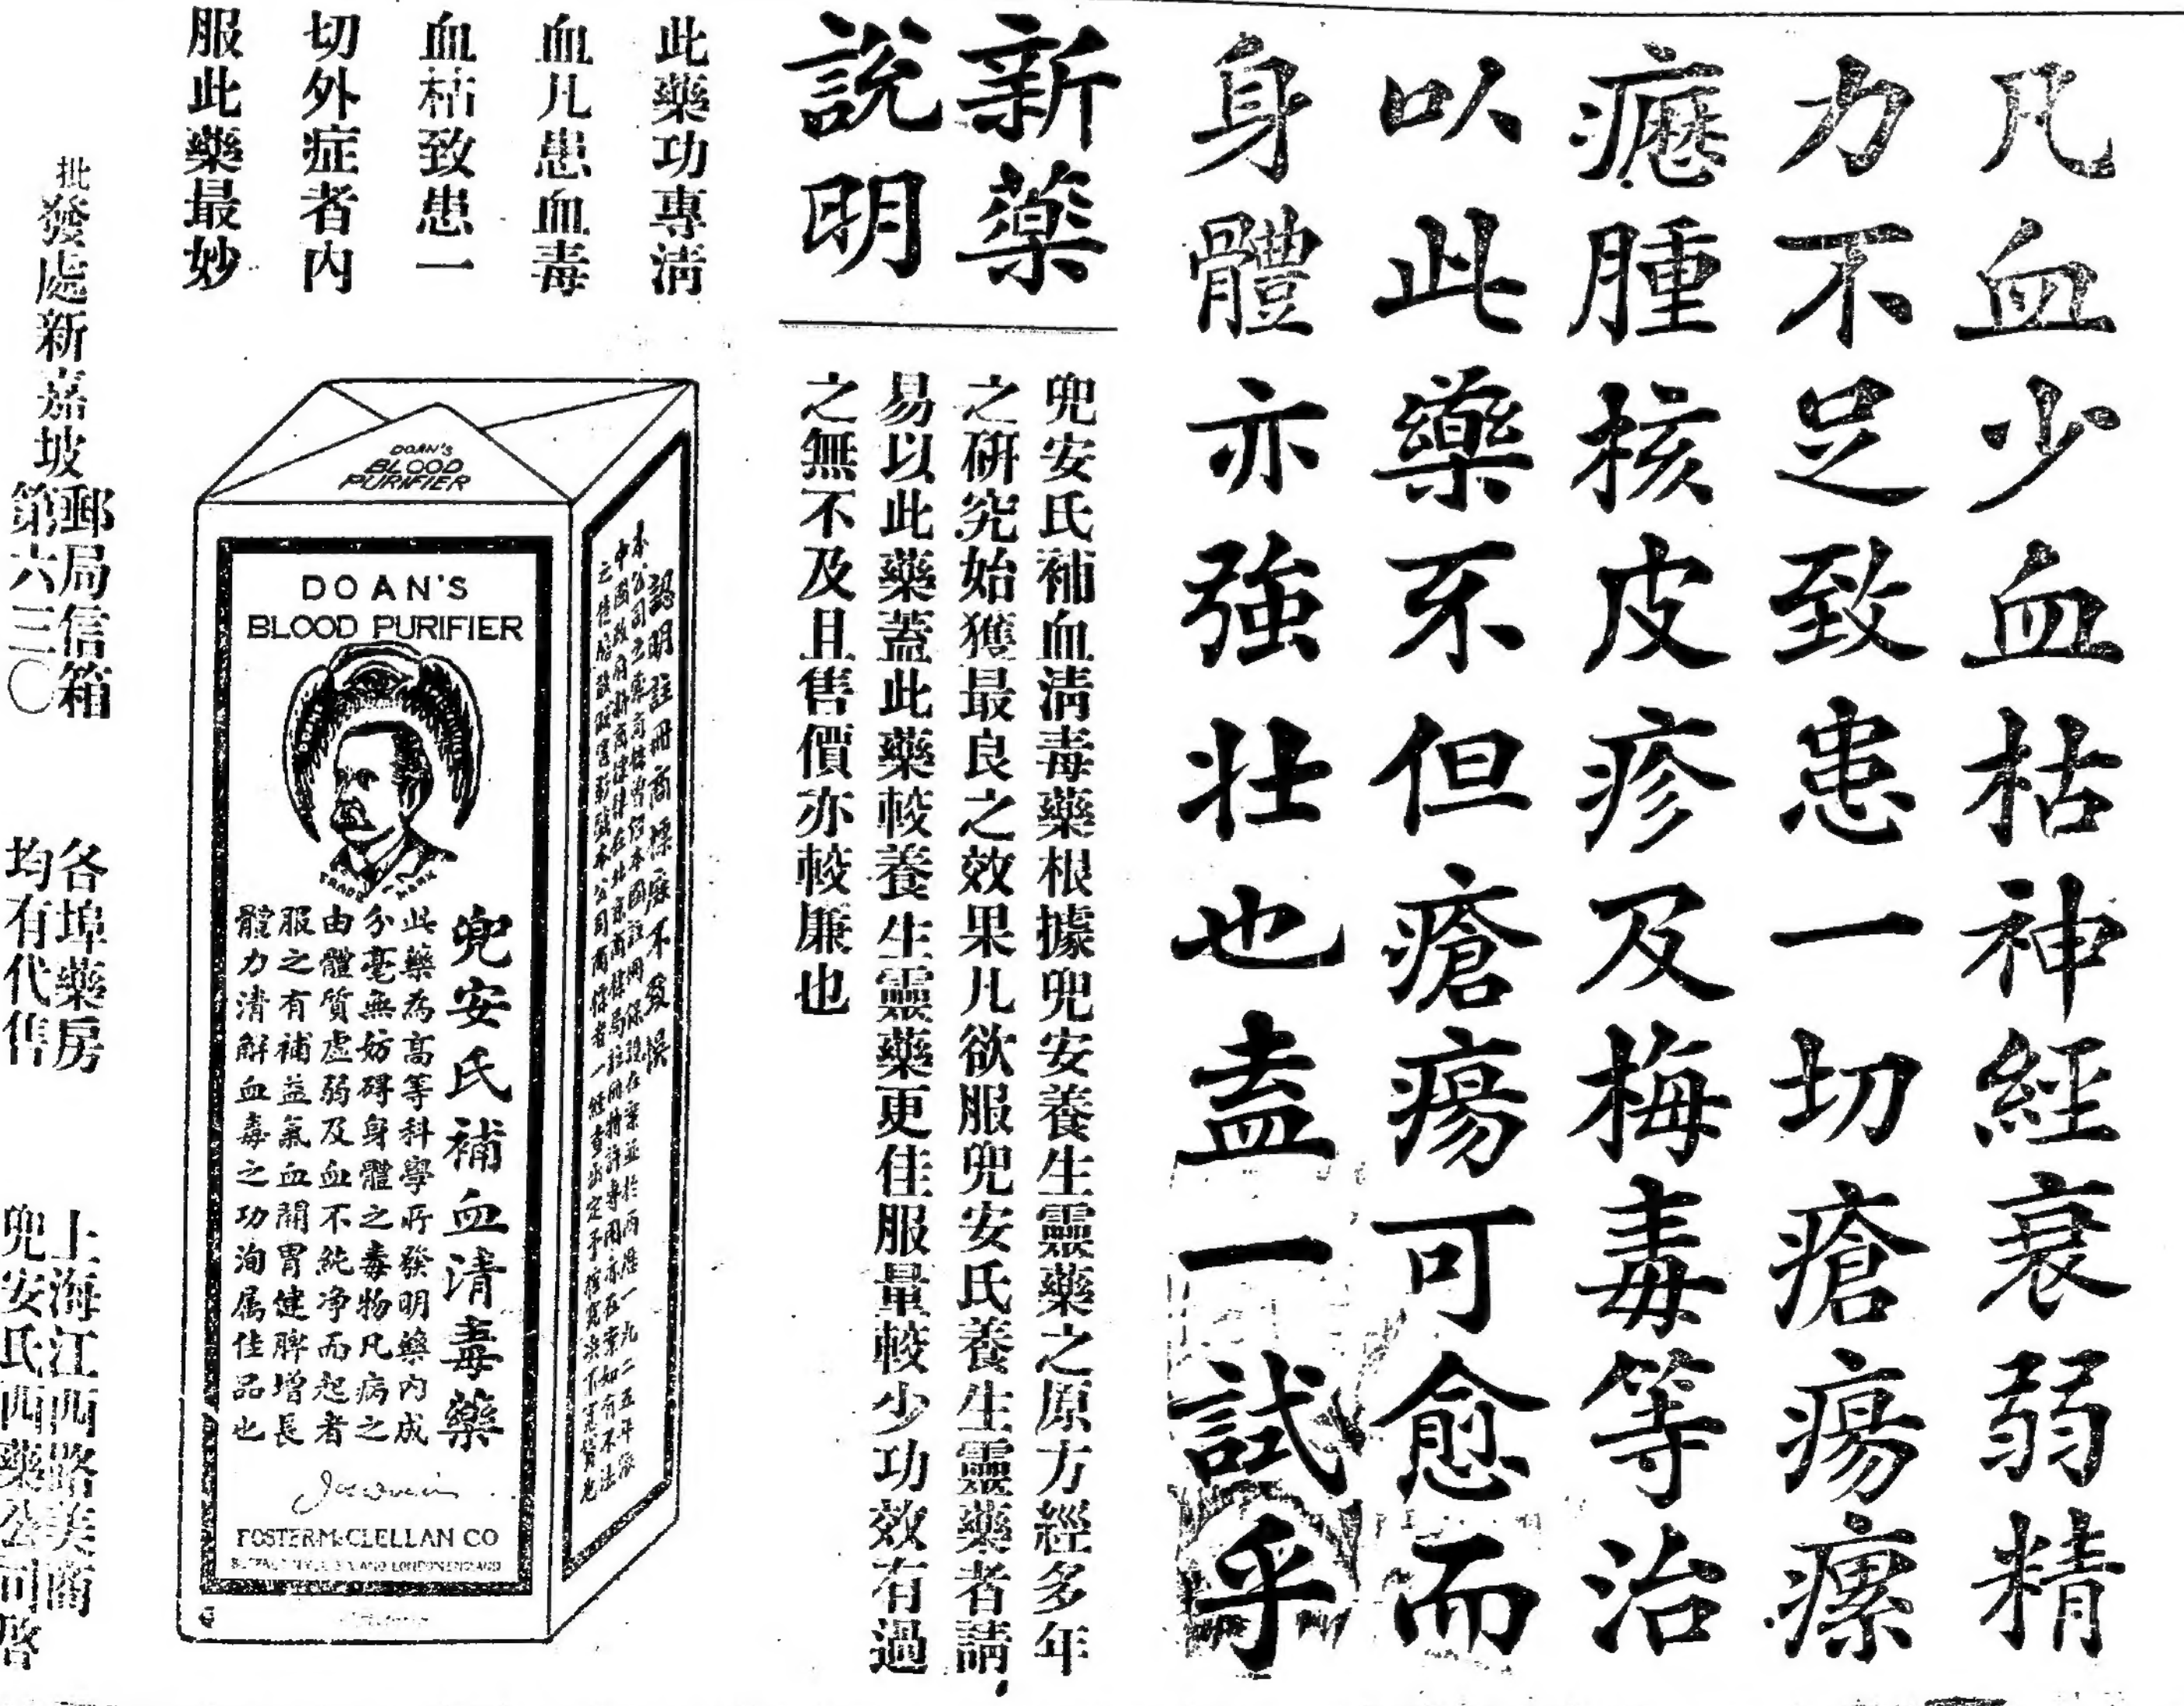 凡血少血枯神經衰弱精
力不足致患一切瘡瘍瘰
癧腫核皮疹及梅毒等治
以此藥不但瘡瘍可愈而
身體亦強壯也盍一試乎
新藥
說明
兜安氏補血清毒藥根據兜安養生靈藥之原方經多年
之研究始獲最良之效果凡欲服兜安氏養生靈藥者請
易以此藥蓋此藥較養生靈藥更佳服量較少功效有過
之無不及且售價亦較廉也
此藥功專清
血凡患血毒
血枯致患一
切外症者內
服此藥最妙
DOAN'S
BLOOD
PURIFIER
DOAN'S
BLOOD PURIFIER
TRADE MARK
兜安氏補血清毒藥
此藥為高等科學所發明藥內成
分毫無妨碍身體之毒物凡病之
由體質虛弱及血不純净而起者
服之有補益氣血開胃健脾增長
體力清解血毒之功洵属佳品也
FOSTER-McCLELLAN CO
認明註冊商標庶不致誤
批發處新嘉坡郵局信箱
第六三〇
各埠藥房
均有代售
上海江西路美商
兜安氏西藥公司啓